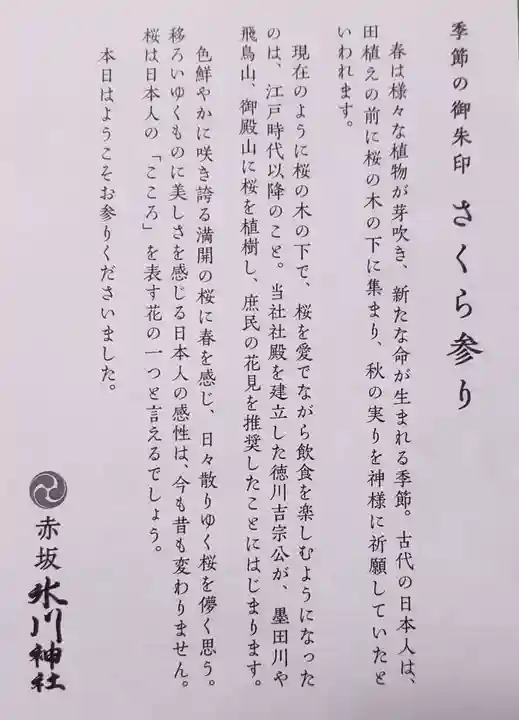 季節の御朱印 さくら参り
春は様々な植物が芽吹き、新たな命が生まれる季節。古代の日本人は、
田植えの前に桜の木の下に集まり、秋の実りを神様に祈願していたと
いわれます。
現在のように桜の木の下で、桜を愛でながら飲食を楽しむようになった
のは、江戸時代以降のこと。当社社殿を建立した徳川吉宗公が、墨田川や
飛鳥山、御殿山に桜を植樹し、庶民の花見を推奨したことにはじまります。
色鮮やかに咲き誇る満開の桜に春を感じ、日々散りゆく桜を儚く思う。
移ろいゆくものに美しさを感じる日本人の感性は、今も昔も変わりません。
桜は日本人の「こころ」を表す花の一つと言えるでしょう。
本日はようこそお参りくださいました。
赤坂 氷川神社